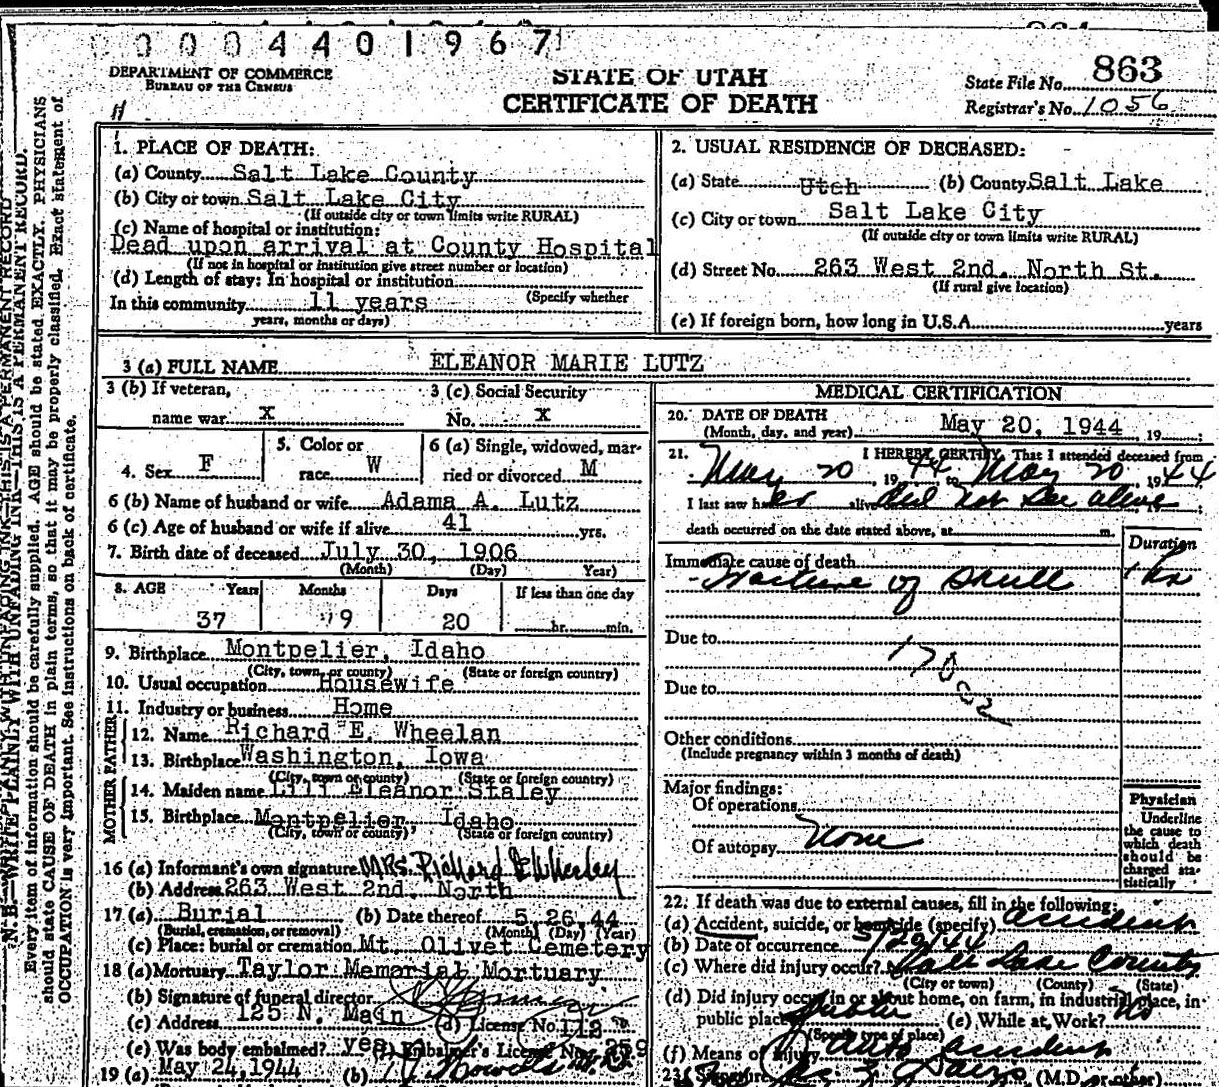 0004401967
DEPARTMENT OF COMMERCE
BUREAU OF THE CENSUS
STATE OF UTAH
CERTIFICATE OF DEATH
State File No. 863
Registrar's No. 1056
N. B.—WRITE PLAINLY WITH UNFADING INK—THIS IS A PERMANENT RECORD.
Every item of information should be carefully supplied. AGE should be stated EXACTLY. PHYSICIANS
should state CAUSE OF DEATH in plain terms, so that it may be properly classified. Exact statement of
OCCUPATION is very important. See instructions on back of certificate.
1. PLACE OF DEATH:
(a) County Salt Lake County
(b) City or town Salt Lake City
(If outside city or town limits write RURAL)
(c) Name of hospital or institution:
Dead upon arrival at County Hospital
(If not in hospital or institution give street number or location)
(d) Length of stay: In hospital or institution
(Specify whether
In this community 11 years
years, months or days)
2. USUAL RESIDENCE OF DECEASED:
(a) State Uteh (b) County Salt Lake
(c) City or town Salt Lake City
(If outside city or town limits write RURAL)
(d) Street No. 263 West 2nd. North St.
(If rural give location)
(e) If foreign born, how long in U.S.A. years
3 (a) FULL NAME ELEANOR MARIE LUTZ
3 (b) If veteran,
name war X
3 (c) Social Security
No. X
4. Sex F
5. Color or
race W
6 (a) Single, widowed, mar-
ried or divorced M
6 (b) Name of husband or wife Adama A. Lutz
6 (c) Age of husband or wife if alive 41 yrs.
7. Birth date of deceased July 30, 1906
(Month) (Day) Year)
8. AGE Years Months Days If less than one day
37 9 20 hr. min.
9. Birthplace Montpelier, Idaho
(City, town, or county) (State or foreign country)
10. Usual occupation Housewife
11. Industry or business Home
FATHER
12. Name Richard E. Wheelan
13. Birthplace Washington, Iowa
(City, town or county) (State or foreign country)
MOTHER
14. Maiden name Lili Eleanor Staley
15. Birthplace Montpelier Idaho
(City, town or county) (State or foreign country)
16 (a) Informant's own signature Mrs. Richard E
(b) Address 263 West 2nd. North
17 (a) Burial (b) Date thereof 5 26 44
(Burial, cremation, or removal) (Month) (Day) (Year)
(c) Place: burial or cremation Mt. Olivet Cemetery
18 (a) Mortuary Taylor Memorial Mortuary
(b) Signature of funeral director
(c) Address 125 N. Main (d) License No. 112
(e) Was body embalmed? yes (f) Embalmer's License No. 259
19 (a) May 24, 1944 (b)
MEDICAL CERTIFICATION
20. DATE OF DEATH
(Month, day, and year) May 20, 1944, 19
21. I HEREBY CERTIFY, That I attended deceased from
May 20, 1944 to May 20, 1944
I last saw her alive did not see alive 19 ;
death occurred on the date stated above, at m.
Duration
Immediate cause of death
Fracture of skull 1 hr
Due to
170
Due to
Other conditions
(Include pregnancy within 3 months of death)
Major findings:
Of operations
Of autopsy None
Physician
Underline
the cause to
which death
should be
charged sta-
tistically
22. If death was due to external causes, fill in the following:
(a) Accident, suicide, or homicide (specify) accident
(b) Date of occurrence 5/20/44
(c) Where did injury occur? Salt Lake County
(City or town) (County) (State)
(d) Did injury occur in or about home, on farm, in industrial place, in
public place Public (e) While at Work? No
(Specify type of place)
(f) Means of injury auto accident
23. Signature (M.D. or other)